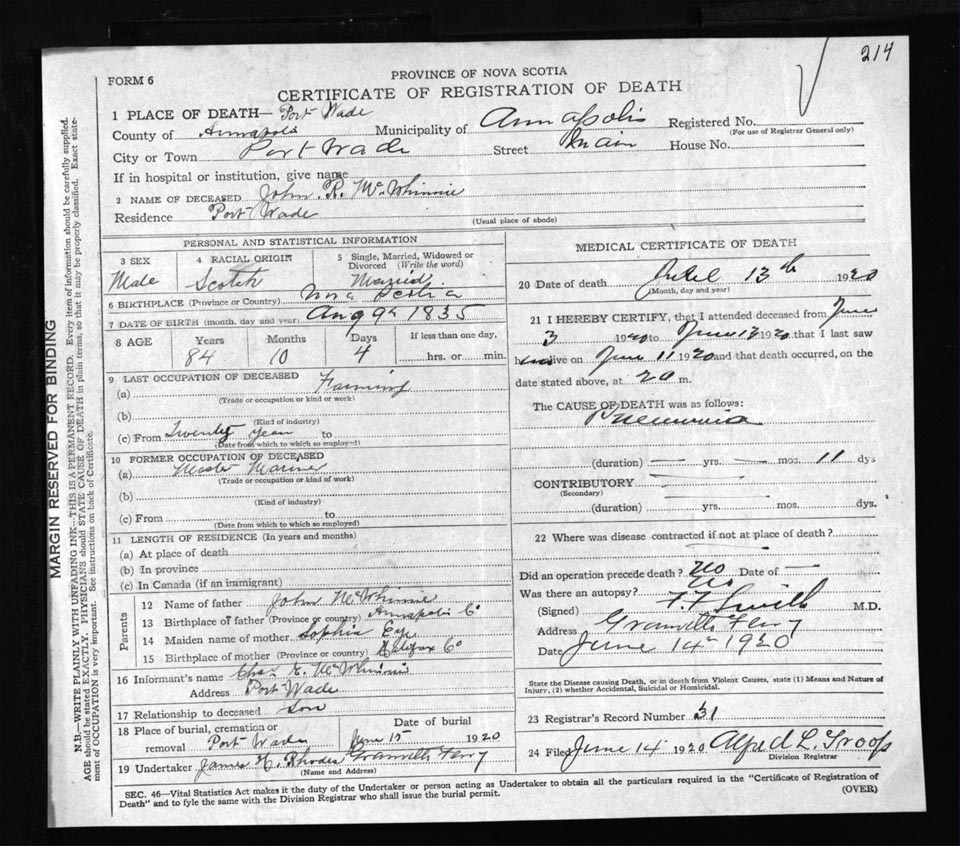 214
FORM 6
PROVINCE OF NOVA SCOTIA
CERTIFICATE OF REGISTRATION OF DEATH
1 PLACE OF DEATH— Port Wade
County of Annapolis Municipality of Annapolis Registered No.
(For use of Registrar General only)
City or Town Port Wade Street Main House No.
If in hospital or institution, give name
2 NAME OF DECEASED John R. McWhinnie
Residence Port Wade
(Usual place of abode)
PERSONAL AND STATISTICAL INFORMATION
3 SEX Male
4 RACIAL ORIGIN Scotch
5 Single, Married, Widowed or Divorced (Write the word) Married
6 BIRTHPLACE (Province or Country) Nova Scotia
7 DATE OF BIRTH (month, day and year) Aug 9th 1835
8 AGE Years 84 Months 10 Days 4 If less than one day, hrs. or min.
9 LAST OCCUPATION OF DECEASED
(a) Farming
(Trade or occupation or kind or work)
(b)
(Kind of industry)
(c) From Twenty Year to
(Date from which to which so employed)
10 FORMER OCCUPATION OF DECEASED
(a) Master Mariner
(Trade or occupation or kind of work)
(b)
(Kind of industry)
(c) From to
(Date from which to which so employed)
11 LENGTH OF RESIDENCE (In years and months)
(a) At place of death
(b) In province
(c) In Canada (if an immigrant)
Parents
12 Name of father John McWhinnie
13 Birthplace of father (Province or country) Annapolis Co
14 Maiden name of mother Sophia Eye
15 Birthplace of mother (Province or country) Halifax Co
16 Informant's name Chas E. McWhinnie
Address Port Wade
17 Relationship to deceased Son
18 Place of burial, cremation or removal Port Wade Date of burial June 15 1920
19 Undertaker James H. Rhodes Granville Ferry
(Name and Address)
MEDICAL CERTIFICATE OF DEATH
20 Date of death 13th 1920
(Month, day and year)
21 I HEREBY CERTIFY, that I attended deceased from June
3 1920 to June 13 1920 that I last saw
h alive on June 11 1920 and that death occurred, on the
date stated above, at 20 m.
The CAUSE OF DEATH was as follows:
Pneumonia
(duration) — yrs. — mos. 11 dys
CONTRIBUTORY
(Secondary)
(duration) yrs. mos. dys.
22 Where was disease contracted if not at place of death?
Did an operation precede death? No Date of —
Was there an autopsy? No
(Signed) F. F. Smith M.D.
Address Granville Ferry
Date June 14th 1920
State the Disease causing Death, or in death from Violent Causes, state (1) Means and Nature of
Injury, (2) whether Accidental, Suicidal or Homicidal.
23 Registrar's Record Number 31
24 Filed June 14 1920 Alfred L. Troop
Division Registrar
SEC. 46—Vital Statistics Act makes it the duty of the Undertaker or person acting as Undertaker to obtain all the particulars required in the "Certificate of Registration of
Death" and to fyle the same with the Division Registrar who shall issue the burial permit.
(OVER)
MARGIN RESERVED FOR BINDING
N.B.—WRITE PLAINLY WITH UNFADING INK—THIS IS A PERMANENT RECORD. Every item of information should be carefully supplied.
AGE should be stated EXACTLY. PHYSICIANS should STATE CAUSE OF DEATH in plain terms, so that it may be properly classified. Exact state-
ment of OCCUPATION is very important. See instructions on back of Certificate.